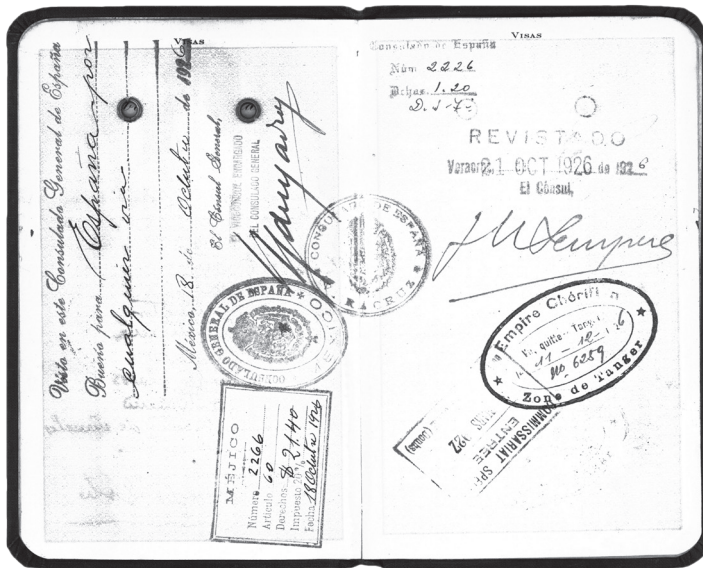 VISAS
Visto en este Consulado General de España
Bueno para España por
cualquier via
México, 18 de Octubre de 1926
El Cónsul General,
EL VICECONSUL ENCARGADO
DEL CONSULADO GENERAL
CONSULADO GENERAL DE ESPAÑA
MEXICO
MÉJICO
Número 2266
Artículo 60
Derechos $21.40
Impuesto 20%
Fecha 18 Octubre 1926
VISAS
Consulado de España
Núm. 2226
Dchos. 1.20
REVISTADO
Veracruz 21 OCT 1926 de 1926
El Cónsul,
CONSULADO DE ESPAÑA
VERACRUZ
Empire Chérifien
quitter Tanger
11-12-26
No 6289
Zone de Tanger
COMMISSARIAT
ENTRÉE